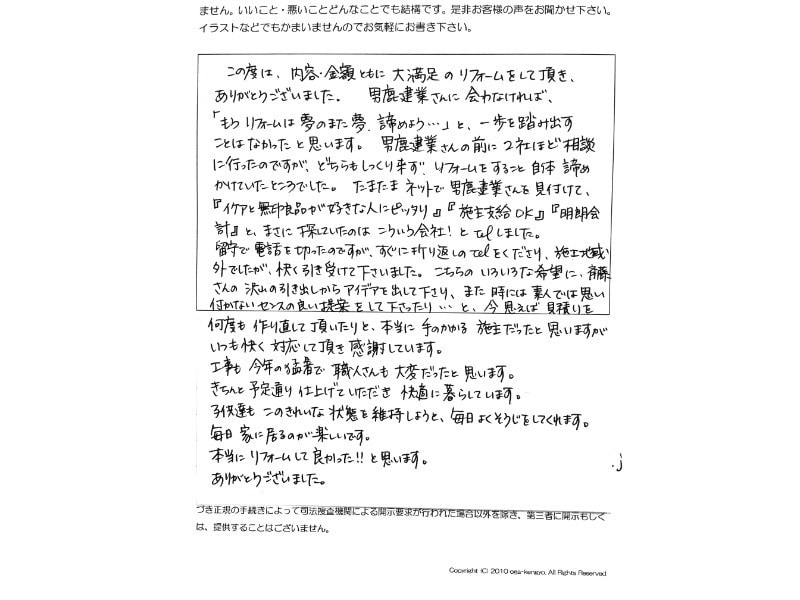 ません。いいこと・悪いことどんなことでも結構です。是非お客様の声をお聞かせ下さい。
イラストなどでもかまいませんのでお気軽にお書き下さい。
この度は、内容・金額ともに大満足のリフォームをして頂き、
ありがとうございました。 男鹿建業さんに会わなければ、
「もうリフォームは夢のまた夢、諦めよう…」と、一歩を踏み出す
ことはなかったと思います。 男鹿建業さんの前に2社ほど相談
に行ったのですが、どちらもしっくり来ず、リフォームをすること自体諦め
かけていたところでした。 たまたまネットで男鹿建業さんを見付けて、
『イケアと無印良品が好きな人にピッタリ』『施主支給OK』『明朗会
計』と、まさに探していたのはこういう会社!とtelしました。
留守で電話を切ったのですが、すぐに折り返しのtelをくださり、施工地域
外でしたが、快く引き受けて下さいました。こちらのいろいろな希望に、斉藤
さんの沢山の引き出しからアイデアを出して下さり、また時には素人では思い
付かないセンスの良い提案をして下さったり…と、今思えば見積りを
何度も作り直して頂いたりと、本当に手のかかる施主だったと思いますが
いつも快く対応して頂き感謝しています。
工事も今年の猛暑で職人さんも大変だったと思います。
きちんと予定通り仕上げていただき快適に暮らしています。
子供達もこのきれいな状態を維持しようと、毎日よくそうじをしてくれます。
毎日家に居るのが楽しいです。
本当にリフォームして良かった!!と思います。
ありがとうございました。
づき正規の手続きによって司法捜査機関による開示要求が行われた場合以外を除き、第三者に開示もしく
は、提供することはございません。
Copyright (C) 2010 oga-kengyo. All Rights Reserved.